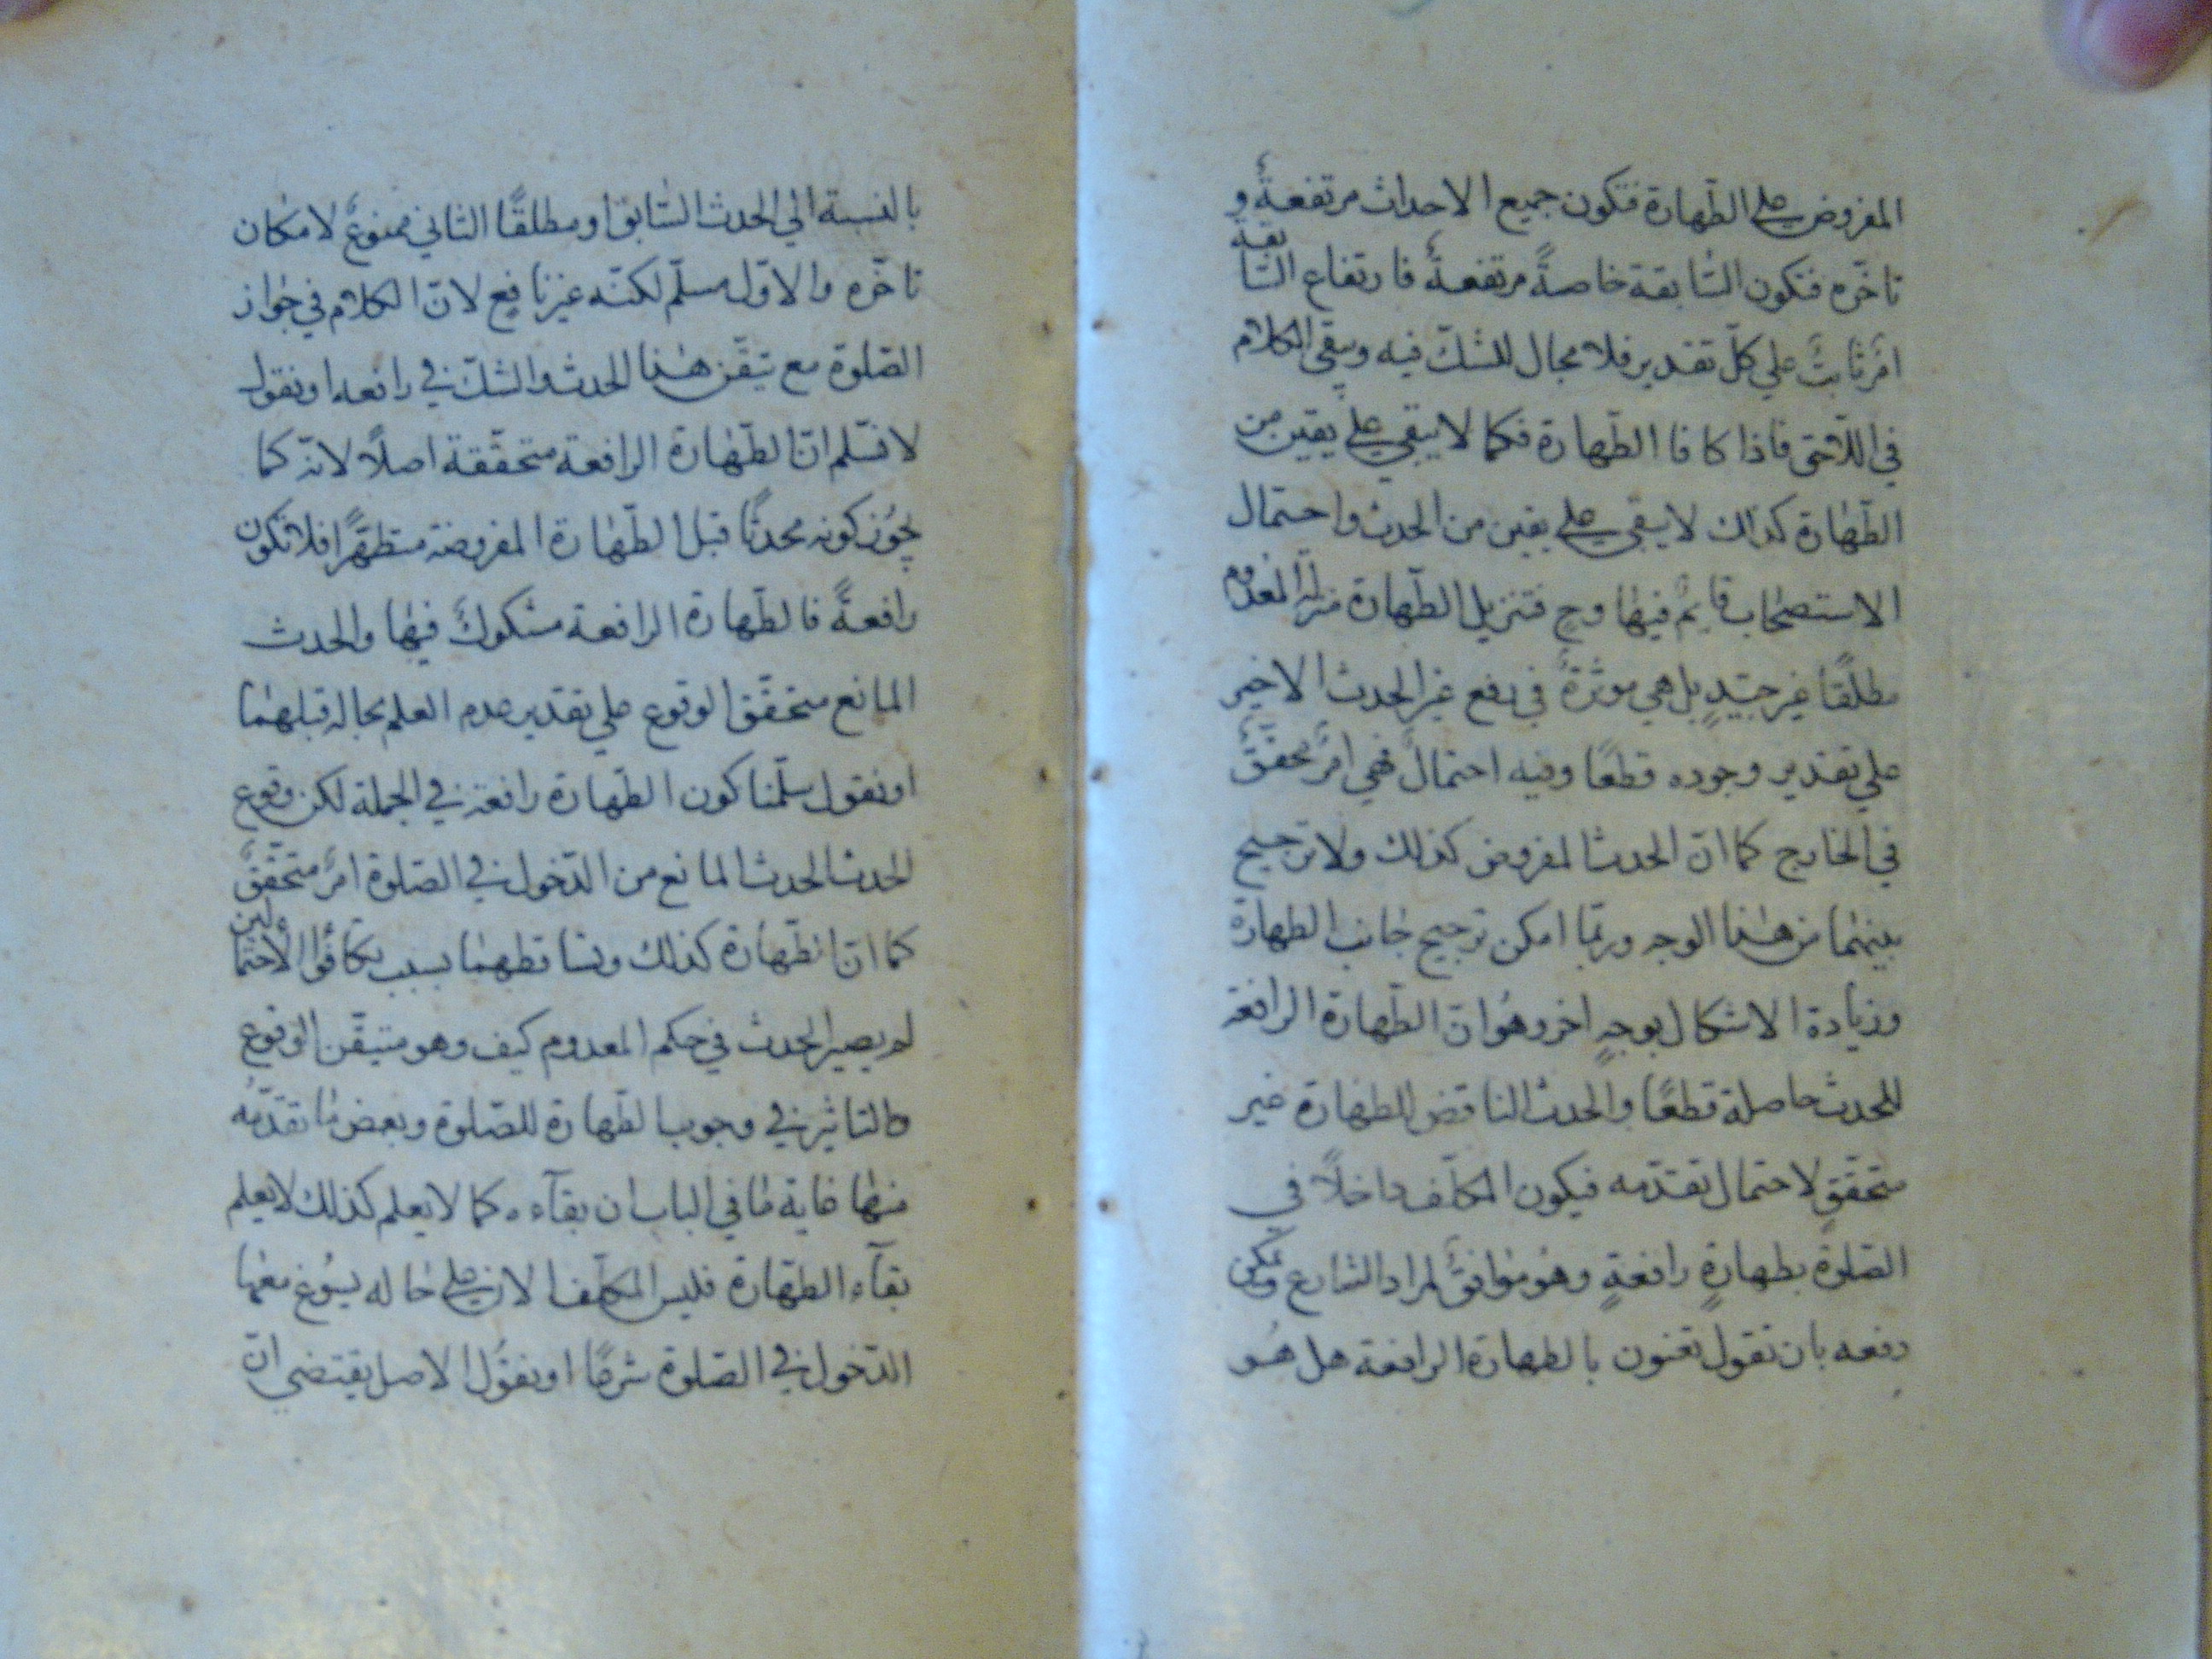 المفروض على الطّهارة فتكون جميع الاحداث مرتفعةً و
تاخّره فتكون السّابقة خاصةً مرتفعةً فارتفاع السّابقة
امرٌ ثابتٌ علي كلّ تقدير فلا مجال للشكّ فيه ويبقي الكلام
في اللّاحق فاذا كافا الطّهارة فكما لا يبقي على يقين من
الطّهارة كذلك لا يبقي على يقين من الحدث واحتمال
الاستصحاب قايمٌ فيها وح فتنزيل الطّهارة منزلة المعدوم
مطلقًا غير جيّدٍ بل هي موثرةٌ في رفع غير الحدث الاخير
علي تقدير وجوده قطعًا وفيه احتمالٌ فهي امرٌ محقّقٌ
في الخارج كما انّ الحدث المفروض كذلك ولا ترجيح
بينهما من هذا الوجه وربّما امكن ترجيح جانب الطهارة
وزيادة الاشكال بوجهٍ اخر وهو انّ الطّهارة الرافعة
للحدث حاصلة قطعًا والحدث الناقض للطهارة غير
متحقّقٍ لاحتمال تقدّمه فيكون المكلّف داخلاً في
الصّلوة بطهارةٍ رافعةٍ وهو موافقٌ لمراد الشارع ويمكن
دفعه بان نقول تعنون بالطهارة الرافعة هل هو
بالنسبة الي الحدث السّابق او مطلقًا الثاني ممنوعٌ لامكان
تاخّره والاوّل مسلّم لكنّه غير نافع لانّ الكلام في جواز
الصّلوة مع تيقّن هذا الحدث والشكّ في رافعه او نقول
لا نسّلم انّ الطّهارة الرافعة متحقّقة اصلاً لانّه كما
يجوز كونه محدثًا قبل الطّهارة المفروضة متطهّرًا فلا تكون
رافعةً فالطّهارة الرافعة مشكوكٌ فيها والحدث
المانع متحقّق الوقوع علي تقدير عدم العلم بحاله قبلهما
او نقول سلّمنا كون الطّهارة رافعة في الجملة لكن وقوع
الحدث الحدث المانع من الدّخول في الصّلوة امرٌ متحقّقٌ
كما انّ الطّهارة كذلك وتساقطهما بسبب تكافؤ الاحتمالين
لم يصير الحدث في حكم المعدوم كيف وهو متيقّن الوقوع
والتاثير في وجوب الطّهارة للصّلوة وبعض ما تقدّمه
منها غاية ما في الباب ان بقآءه كما لا يعلم كذلك لا يعلم
بقآء الطّهارة فليس المكلّف الان على حاله يسوغ معها
الدّخول في الصّلوة شرعًا او نقول الاصل يقتضي انّ